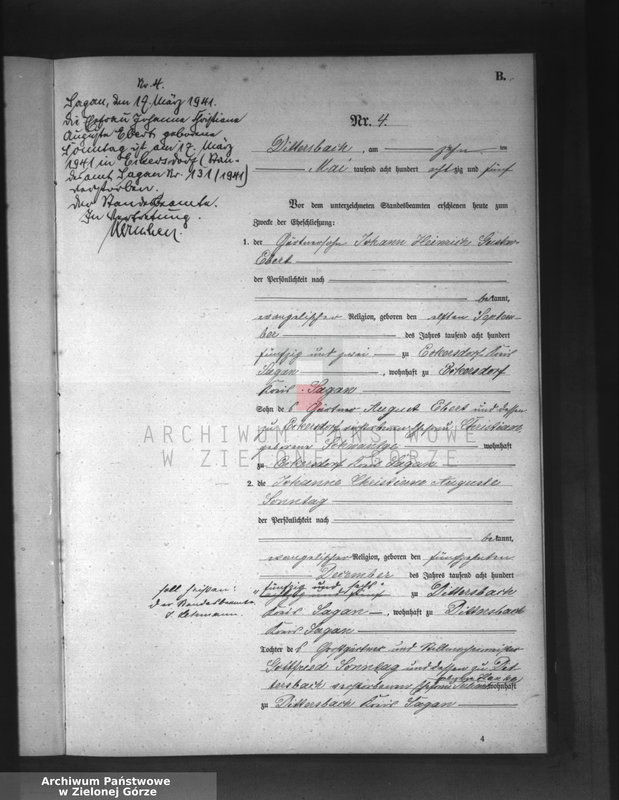 B.
Nr. 4.
Sagan, den 19. März 1941.
Die Ehefrau Johanne Christiane
Auguste Ebert geborene
Sonntag ist am 17. März
1941 in Eckersdorf (Stan-
desamt Sagan Nr. 131/1941)
verstorben.
Der Standesbeamte.
In Vertretung.
Nr. 4.
Dittersbach, am zehn ten
Mai tausend acht hundert achtzig und fünf
Vor dem unterzeichneten Standesbeamten erschienen heute zum
Zwecke der Eheschließung:
1. der Gärtnersohn Johann Heinrich Gustav
Ebert
der Persönlichkeit nach
bekannt,
evangelischer Religion, geboren den elften Septem-
ber des Jahres tausend acht hundert
fünfzig und zwei zu Eckersdorf Kreis
Sagan, wohnhaft zu Eckersdorf
Kreis Sagan
Sohn des Gärtner August Ebert und dessen
zu Eckersdorf verstorbenen Ehefrau Christiane
geborene wohnhaft
zu Eckersdorf Kreis Sagan
2. die Johanne Christiane Auguste
Sonntag
der Persönlichkeit nach
bekannt,
evangelischer Religion, geboren den fünfzehnten
December des Jahres tausend acht hundert
fünfzig und zu Dittersbach
Kreis Sagan, wohnhaft zu Dittersbach
Kreis Sagan
soll heißen:
Der Standesbeamte
Lehmann
Tochter des Großgärtner und Stellmachermeister
Gottfried Sonntag und dessen zu Dit-
tersbach verstorbenen Ehefrau wohnhaft
zu Dittersbach Kreis Sagan
4
ARCHIWUM PAŃSTWOWE
W ZIELONEJ GÓRZE
Archiwum Państwowe
w Zielonej Górze